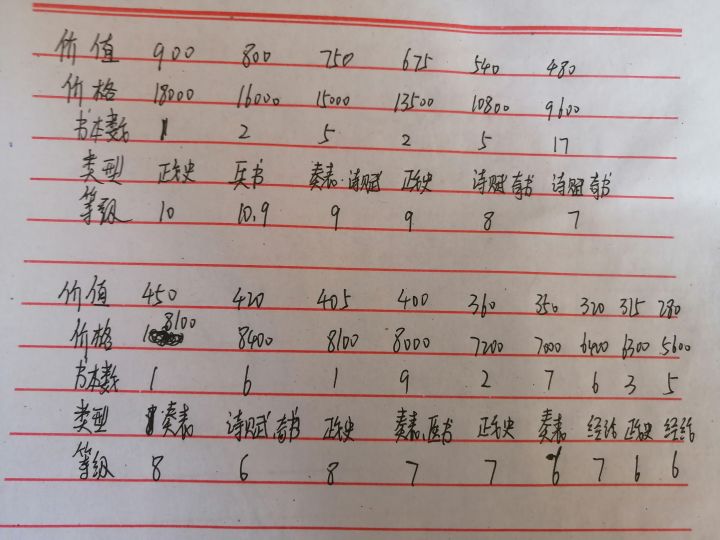 价值 900 800 750 675 540 480
价格 18000 16000 15000 13500 10800 9600
书本数 1 2 5 2 5 17
类型 正史 兵书 奏表·诗赋 正史 诗赋 奇书 诗赋 奇书
等级 10 10.9 9 9 8 7
价值 450 420 405 400 360 350 320 315 280
价格 8100 8400 8100 8000 7200 7000 6400 6300 5600
书本数 1 6 1 9 2 7 6 3 5
类型 奏表 诗赋.奇书 正史 奏表.医书 正史 奏表 经结 正史 经结
等级 8 6 8 7 7 6 7 6 6